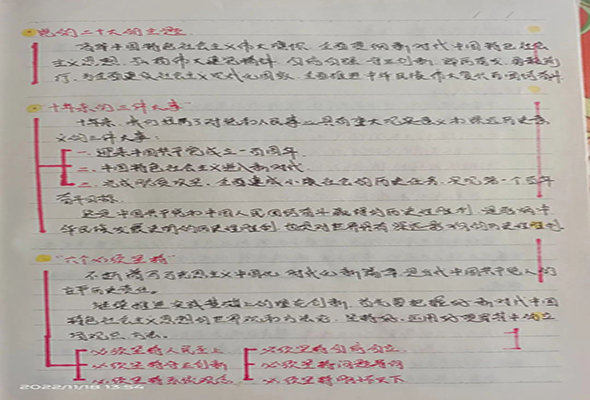 党的二十大的主题
高举中国特色社会主义伟大旗帜，全面贯彻新时代中国特色社会
主义思想，弘扬伟大建党精神，自信自强、守正创新，踔厉奋发、勇毅前
行，为全面建设社会主义现代化国家、全面推进中华民族伟大复兴而团结奋斗
"十年来的三件大事"
十年来，我们经历了对党和人民事业具有重大现实意义和深远历史意
义的三件大事：
一、迎来中国共产党成立一百周年
二、中国特色社会主义进入新时代
三、完成脱贫攻坚、全面建成小康社会的历史任务，实现第一个百年
奋斗目标
这是中国共产党和中国人民团结奋斗赢得的历史性胜利，是彪炳中
华民族发展史册的历史性胜利，也是对世界具有深远影响的历史性胜利
"六个必须坚持"
不断谱写马克思主义中国化时代化新篇章，是当代中国共产党人的
庄严历史责任。
继续推进实践基础上的理论创新，首先要把握好新时代中国
特色社会主义思想的世界观和方法论，坚持好、运用好贯穿其中的立
场观点方法。
必须坚持人民至上 必须坚持自信自立
必须坚持守正创新 必须坚持问题导向
必须坚持系统观念 必须坚持胸怀天下
2022/11/18 13:54